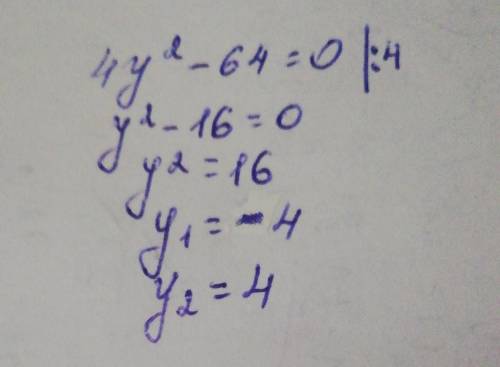 4y² - 64 = 0 |:4
y² - 16 = 0
y² = 16
y₁ = - 4
y₂ = 4